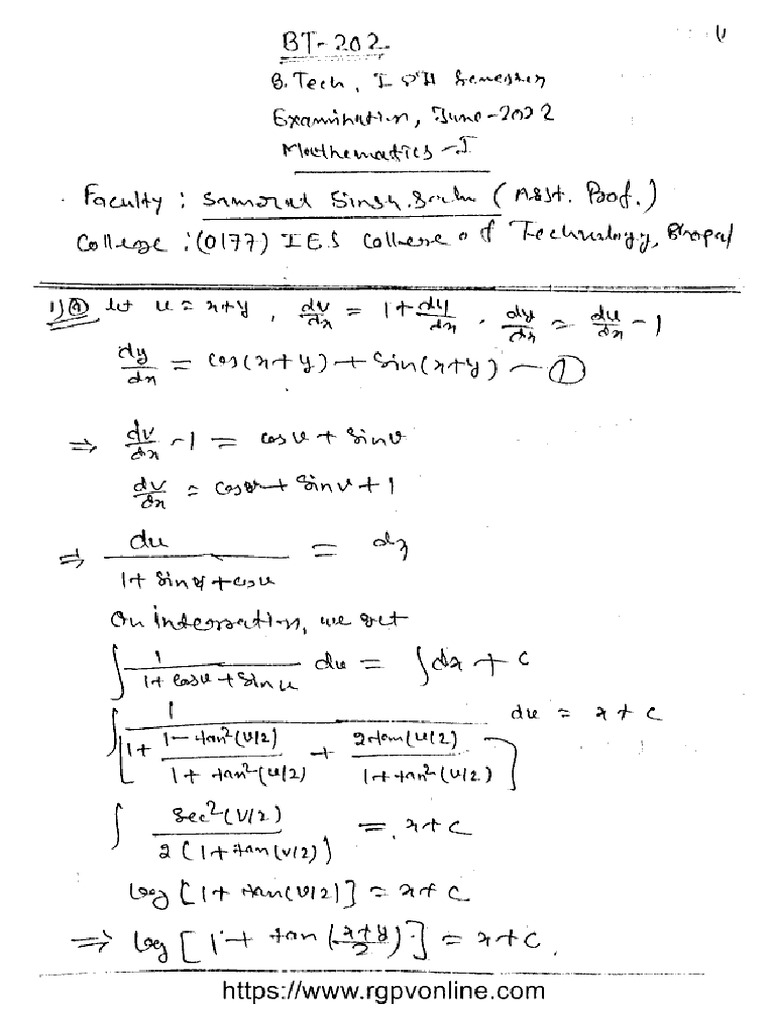 BT-202
B.Tech, I & II Semester
Examination, June-2022
Mathematics-I
Faculty : Samrat Singh (Asst. Prof.)
College : (0177) IES College of Technology, Bhopal
1) a) let u = x+y, du/dx = 1 + dy/dx, dy/dx = du/dx - 1
dy/dx = cos(x+y) + sin(x+y) — ①
⇒ du/dx - 1 = cos u + sin u
du/dx = cos u + sin u + 1
⇒ du / (1 + sin u + cos u) = dx
On integration, we get
∫ 1/(1 + cos u + sin u) du = ∫dx + c
∫ 1/[1 + (1 - tan²(u/2))/(1 + tan²(u/2)) + 2tan(u/2)/(1 + tan²(u/2))] du = x + c
∫ sec²(u/2) / 2(1 + tan(u/2)) = x + c
log [1 + tan(u/2)] = x + c
⇒ log [1 + tan((x+y)/2)] = x + c.
https://www.rgpvonline.com